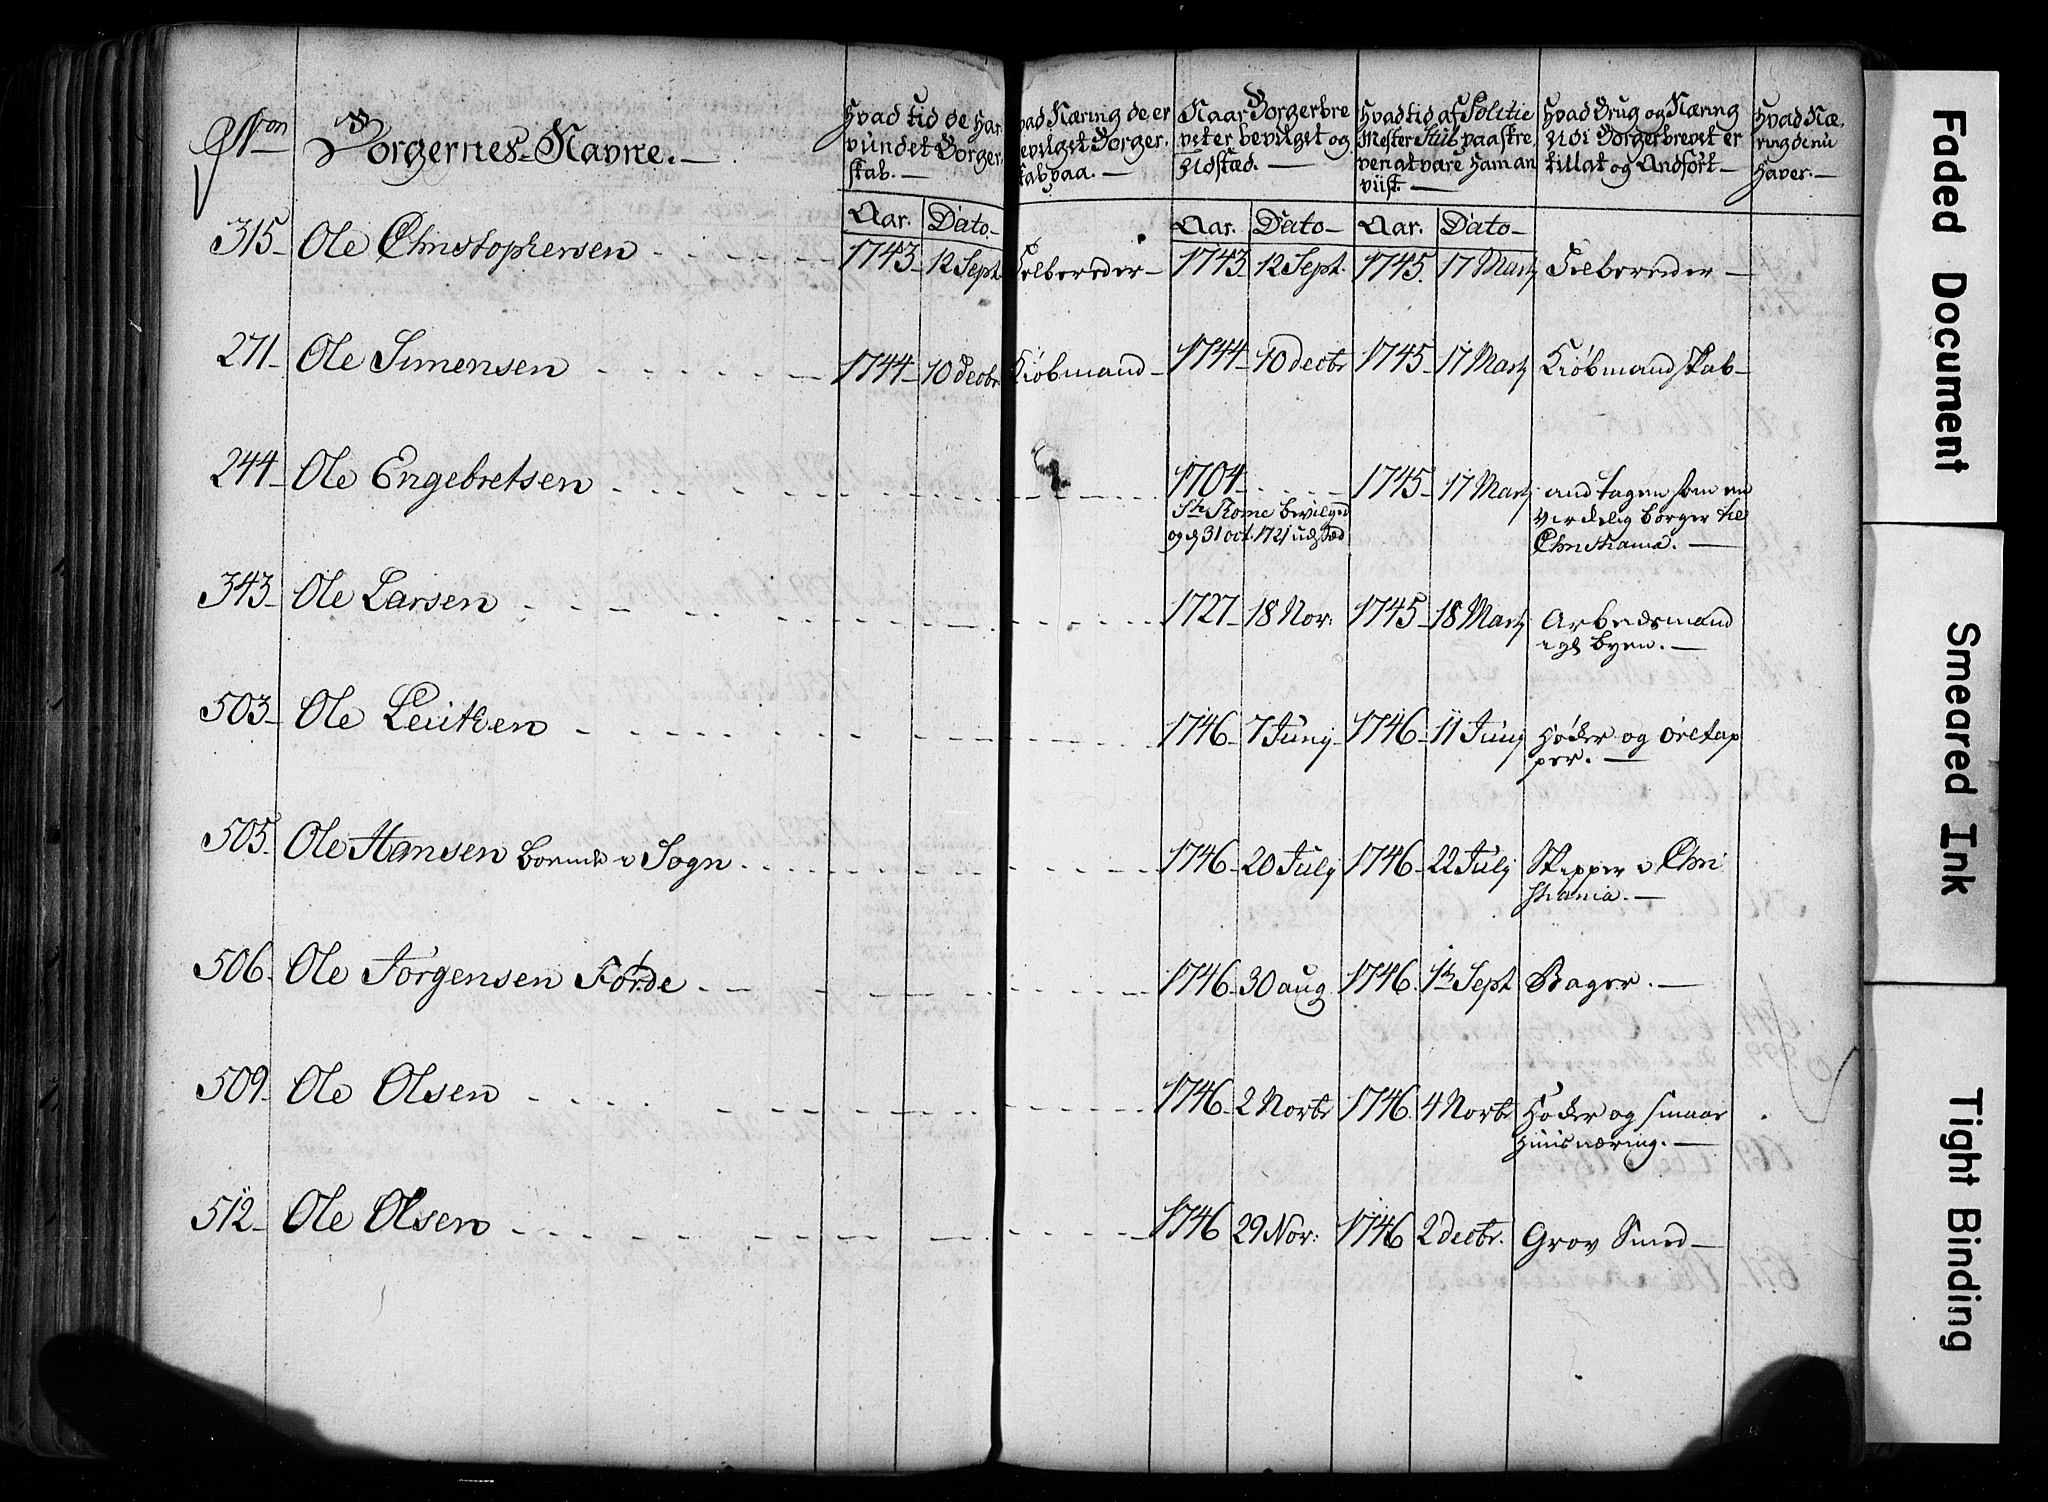 Non
Borgernes Navne. —
Hvad tid de har
vundet Borger
skab. —
Aar. Dato.
vad Næring de er
bevilget Borger.
skab paa. —
Naar Borgerbre
vet er, bevilget og
Udstæd. —
Aar. Dato —
Hvad tid af Politie
Mester Stub paa skre
ven at være ham an
viist. —
Aar. Dato —
Hvad Brug og Næring
Udi Borgerbrevet er
tillat og Andført —
Hvad Næ
ring de nu
haver. —
315 Ole Christophersen 1743 12 Sept. Felbereder — 1743 12 Sept. 1745. 17 Marty Felbereder —
271 Ole Simensen 1744 10 decbr Kiøbmand — 1744 10 decbr 1745 17 Marty Kiøbmandskab —
244 Ole Engebretsen 1704 1745 17 Marty andtagen som en
bevilged virkelig borger til
og d. 31 oct. 1721 udstæd Christiania. —
343 Ole Larsen 1727 18 Nov: 1745 18 Marty Arbeidsmand
byen. —
503 Ole Leutken 1746 7 Juny 1746 11 Juny Høker og øretap
per. —
505 Ole Hansen boende i Sogn 1746 20 July 1746 22 July Skipper i Chri
stiania. —
506 Ole Jørgensen Førde 1746 30 aug 1746. 1te Sept Bager. —
509 Ole Olsen 1746 2 Novbr 1746. 4 Novbr Høker og smaae
huusnæring. —
512 Ole Olsen 1746 29 Nov: 1746 2 decbr. Grov Smed —
Faded Document
Smeared Ink
Tight Binding